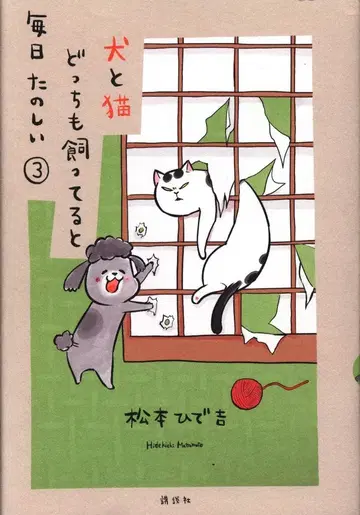 犬と猫
どっちも飼ってると
毎日 たのしい ③
松本ひで吉
Hidekichi Matsumoto
講談社